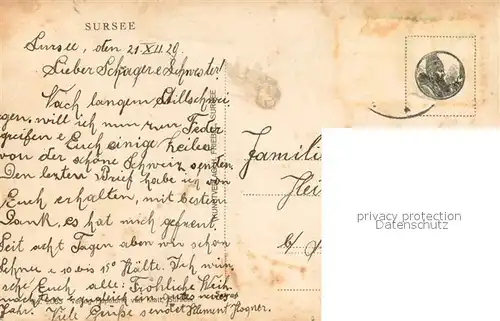 SURSEE
Sursee, den 21.XII.29.
Lieber Schwager e Schwester!
Nach langem Stillschwei
gen, will ich nun zur Feder
greifen e Euch einige Zeilen
von der schöne Schweiz senden.
Den letzten Brief habe ich von
Euch erhalten, mit bestem
Dank, es hat mich gefreut.
Seit acht Tagen aben wir schon
Schnee e 10 bis 15° Hälte. Ich wün
sche Euch alle: Fröhliche Weih
nachten e gutes neues
Jahr. Viele Grüße sendet Klement Hogner.
KUNSTVERLAG H. FRIEBEL, SURSEE
Familie
privacy protection
Datenschutz